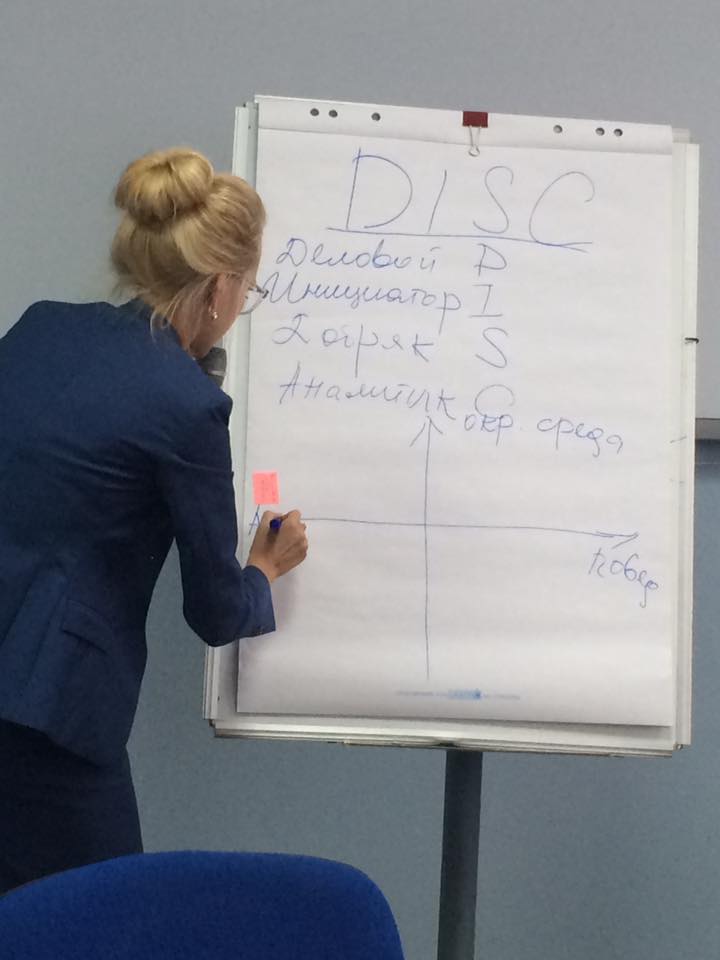 DISC
Деловой D
Инициатор I
Добряк S
Аналитик C
окр. среда
А